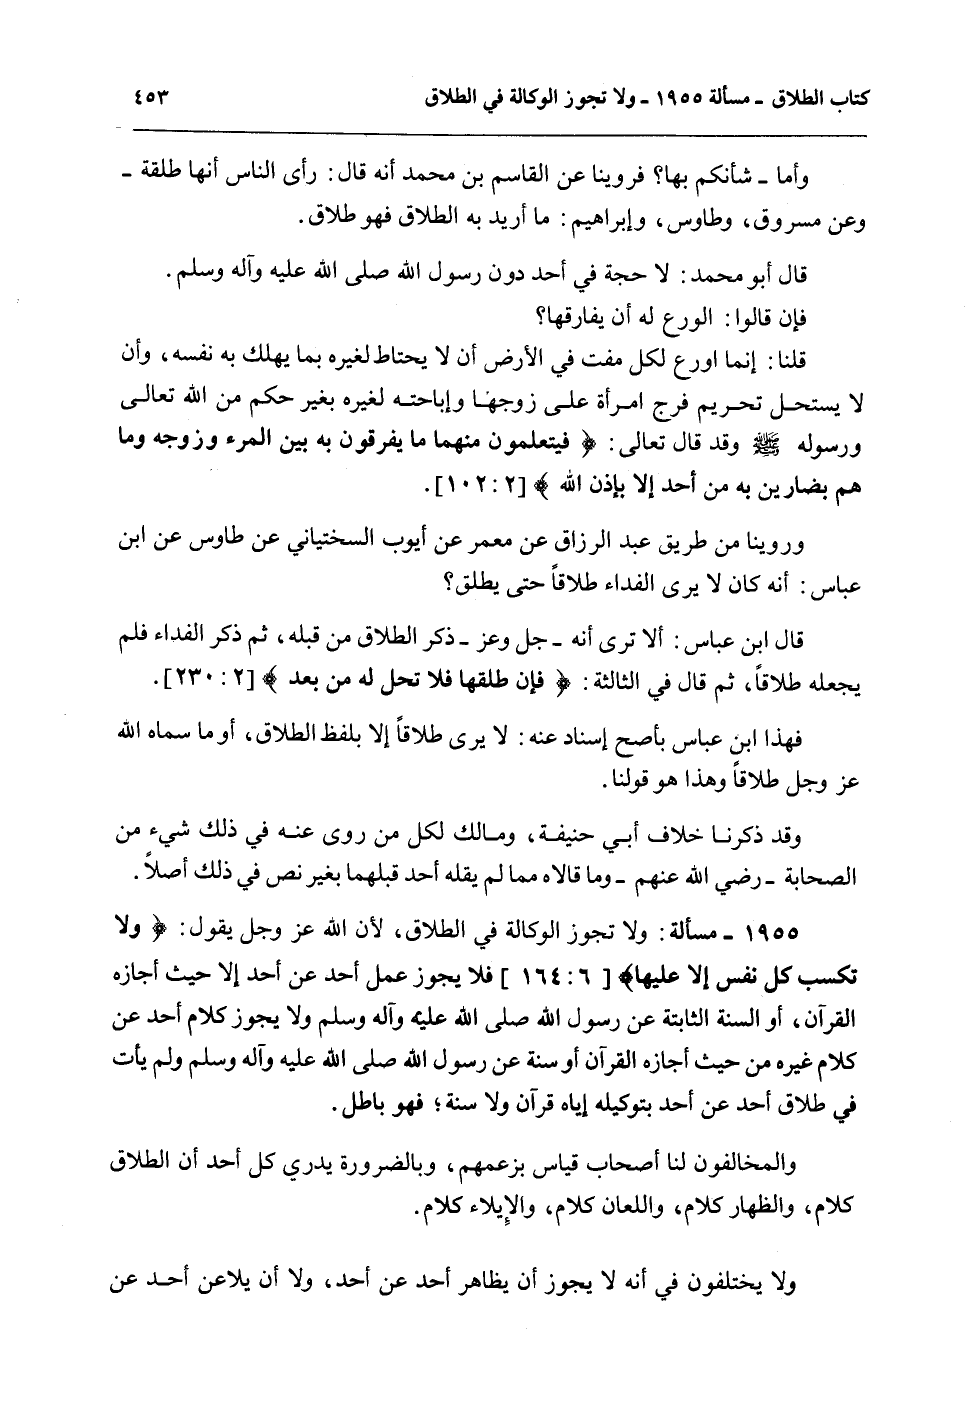 كتاب الطلاق ـ مسألة ١٩٥٥ ـ ولا تجوز الوكالة في الطلاق ٤٥٣
وأما ـ شأنكم بها؟ فروينا عن القاسم بن محمد أنه قال: رأى الناس أنها طلقة ـ
وعن مسروق، وطاوس، وإبراهيم: ما أريد به الطلاق فهو طلاق.
قال أبو محمد: لا حجة في أحد دون رسول الله صلى الله عليه وآله وسلم.
فإن قالوا: الورع له أن يفارقها؟
قلنا: إنما اورع لكل مفت في الأرض أن لا يحتاط لغيره بما يهلك به نفسه، وأن
لا يستحل تحريم فرج امرأة على زوجها وإباحته لغيره بغير حكم من الله تعالى
ورسوله ﷺ وقد قال تعالى: ﴿ فيتعلمون منهما ما يفرقون به بين المرء وزوجه وما
هم بضارين به من أحد إلا بإذن الله ﴾ [٢: ١٠٢].
وروينا من طريق عبد الرزاق عن معمر عن أيوب السختياني عن طاوس عن ابن
عباس: أنه كان لا يرى الفداء طلاقاً حتى يطلق؟
قال ابن عباس: ألا ترى أنه ـ جل وعز ـ ذكر الطلاق من قبله، ثم ذكر الفداء فلم
يجعله طلاقاً، ثم قال في الثالثة: ﴿ فإن طلقها فلا تحل له من بعد ﴾ [٢: ٢٣٠].
فهذا ابن عباس بأصح إسناد عنه: لا يرى طلاقاً إلا بلفظ الطلاق، أو ما سماه الله
عز وجل طلاقاً وهذا هو قولنا.
وقد ذكرنا خلاف أبي حنيفة، ومالك لكل من روى عنه في ذلك شيء من
الصحابة ـ رضي الله عنهم ـ وما قالاه مما لم يقله أحد قبلهما بغير نص في ذلك أصلاً.
١٩٥٥ ـ مسألة: ولا تجوز الوكالة في الطلاق، لأن الله عز وجل يقول: ﴿ ولا
تكسب كل نفس إلا عليها﴾ [ ٦: ١٦٤ ] فلا يجوز عمل أحد عن أحد إلا حيث أجازه
القرآن، أو السنة الثابتة عن رسول الله صلى الله عليه وآله وسلم ولا يجوز كلام أحد عن
كلام غيره من حيث أجازه القرآن أو سنة عن رسول الله صلى الله عليه وآله وسلم ولم يأت
في طلاق أحد عن أحد بتوكيله إياه قرآن ولا سنة؛ فهو باطل.
والمخالفون لنا أصحاب قياس بزعمهم، وبالضرورة يدري كل أحد أن الطلاق
كلام، والظهار كلام، واللعان كلام، والإيلاء كلام.
ولا يختلفون في أنه لا يجوز أن يظاهر أحد عن أحد، ولا أن يلاعن أحد عن